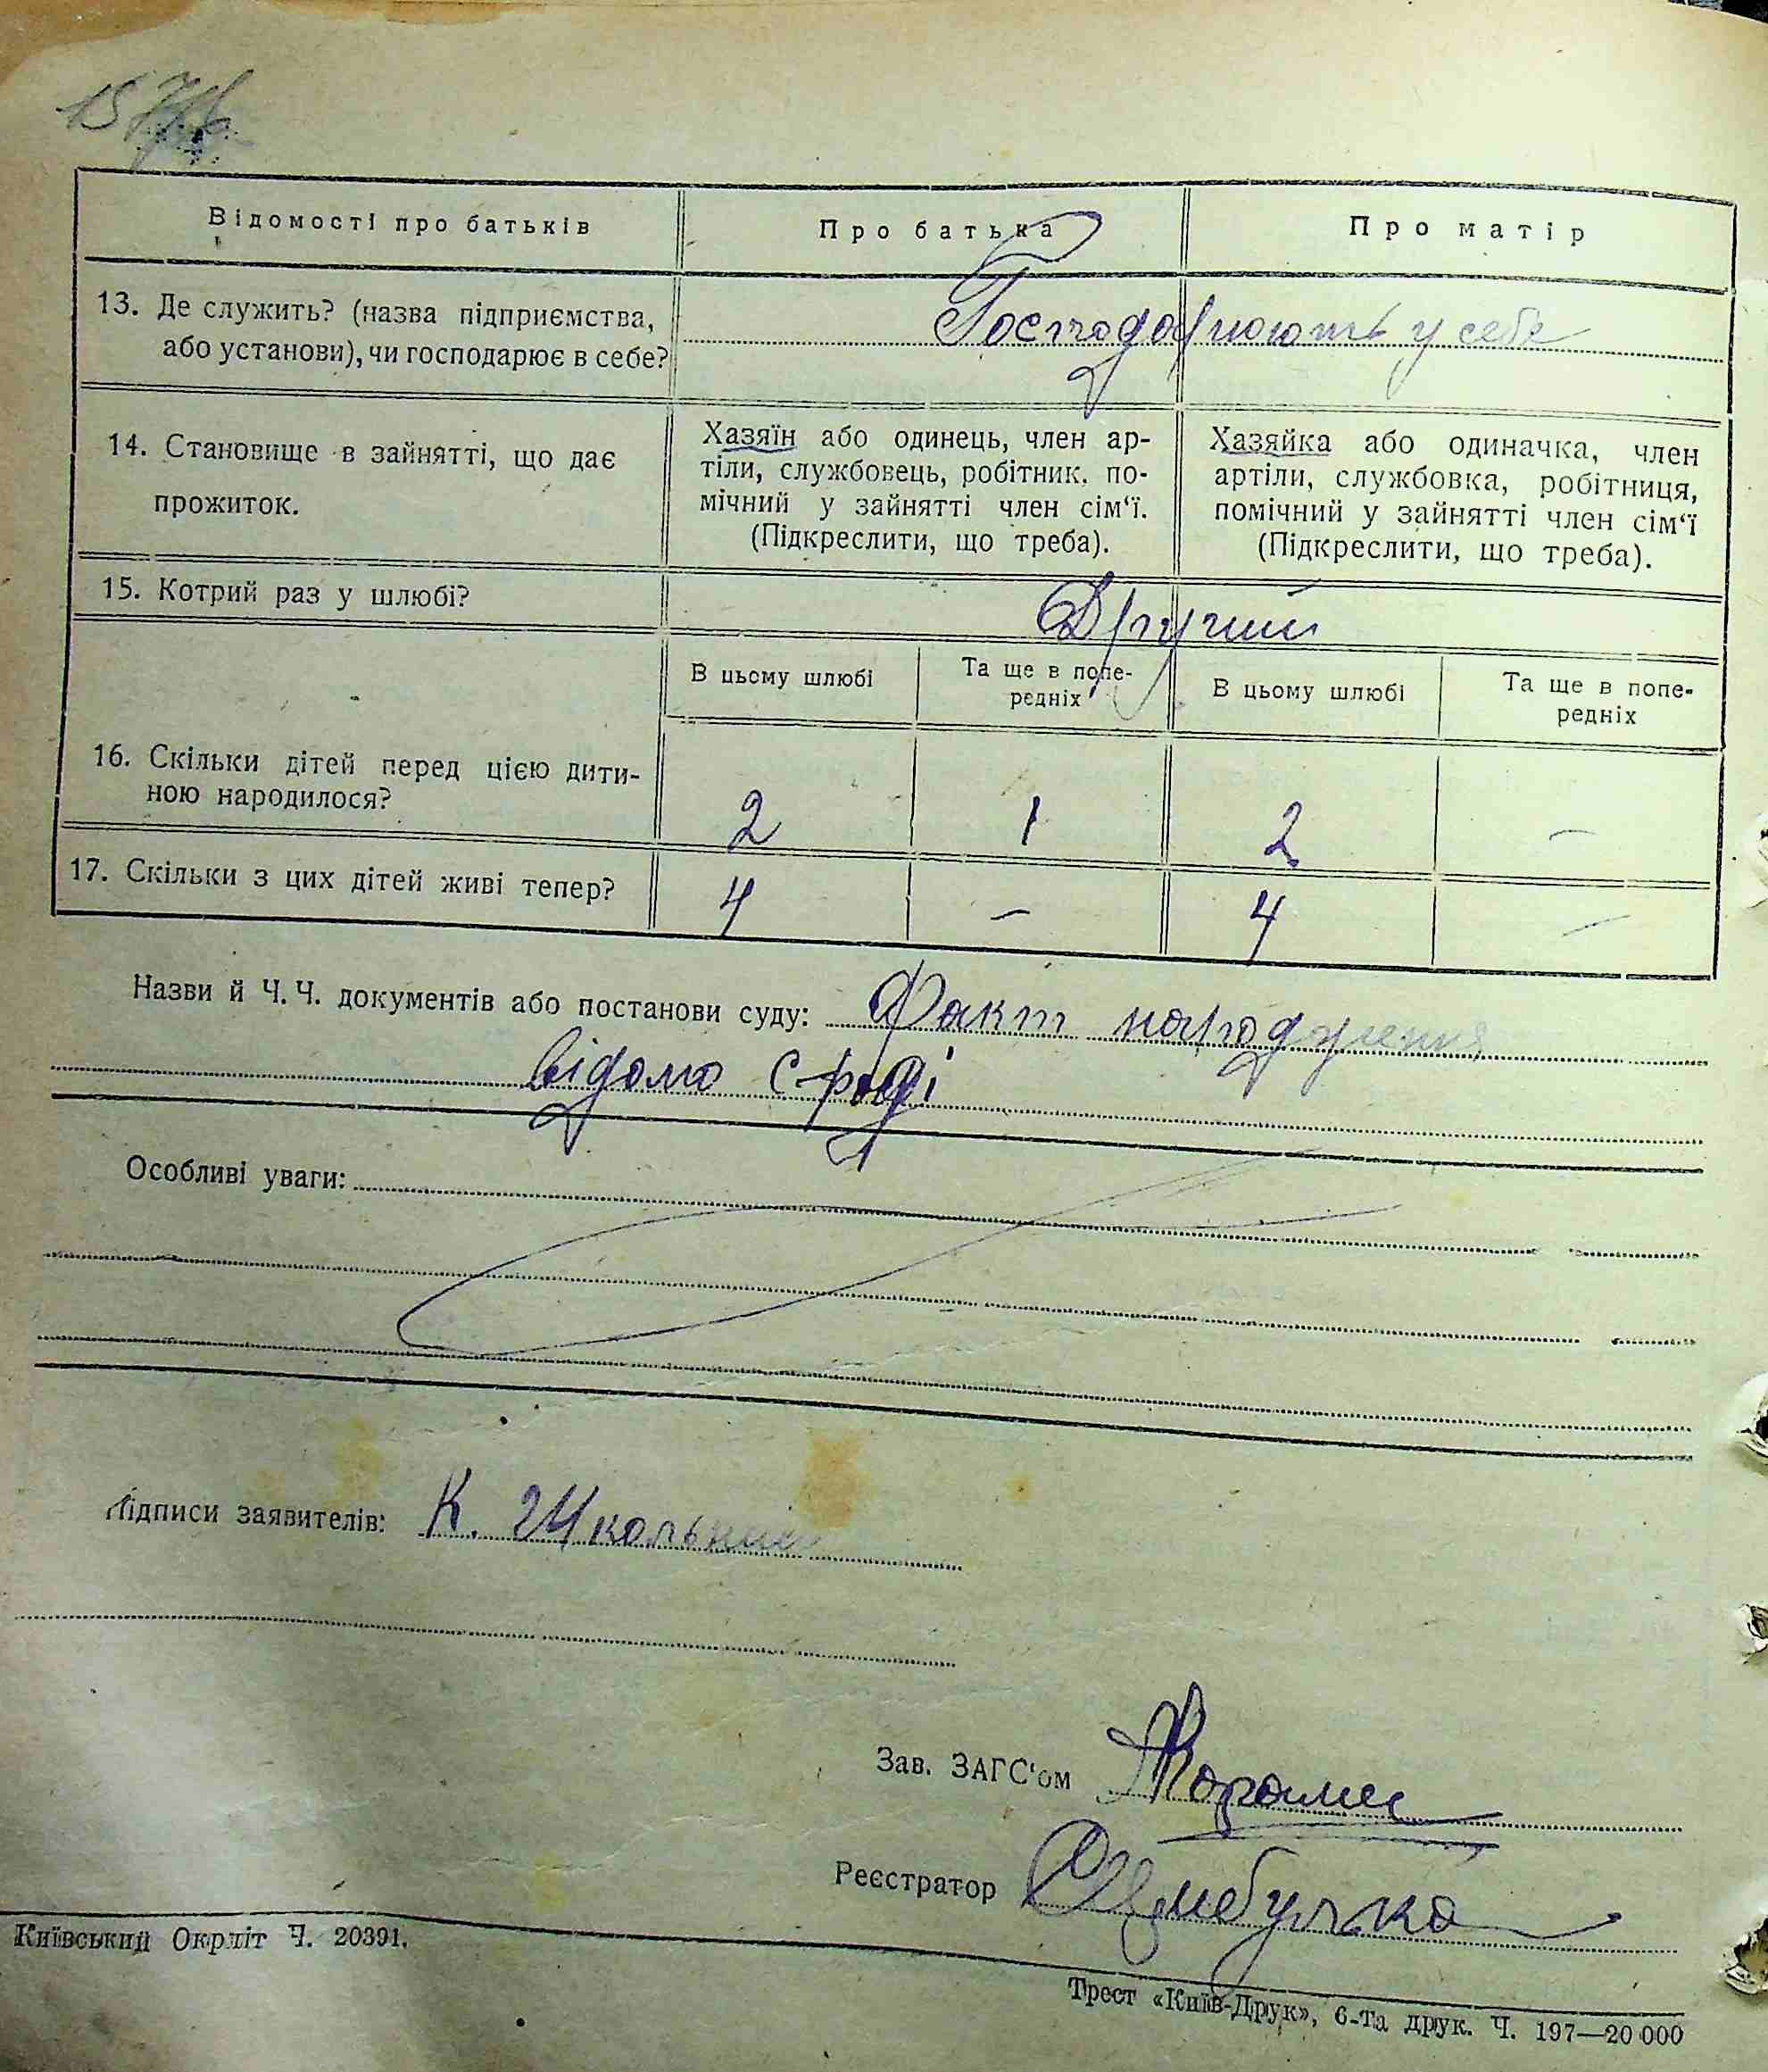 Відомості про батьків
Про батька
Про матір
13. Де служить? (назва підприємства,
або установи), чи господарює в себе?
Господорюють у себе
14. Становище в зайнятті, що дає
прожиток.
Хазяїн або одинець, член ар-
тіли, службовець, робітник. по-
мічний у зайнятті член сім‘ї.
(Підкреслити, що треба).
Хазяйка або одиначка, член
артіли, службовка, робітниця,
помічний у зайнятті член сім‘ї
(Підкреслити, що треба).
15. Котрий раз у шлюбі?
Другий
В цьому шлюбі
Та ще в попе-
редніх
В цьому шлюбі
Та ще в попе-
редніх
16. Скільки дітей перед цією дити-
ною народилося?
2 1 2 —
17. Скільки з цих дітей живі тепер?
4 — 4 —
Назви й Ч. Ч. документів або постанови суду: Факт народження
відомо с/раді
Особливі уваги:
Підписи заявителів: К. Школьник
Зав. ЗАГС'ом
Реєстратор
Київський Окрліт Ч. 20391.
Трест «Київ-Друк», 6-та друк. Ч. 197—20 000